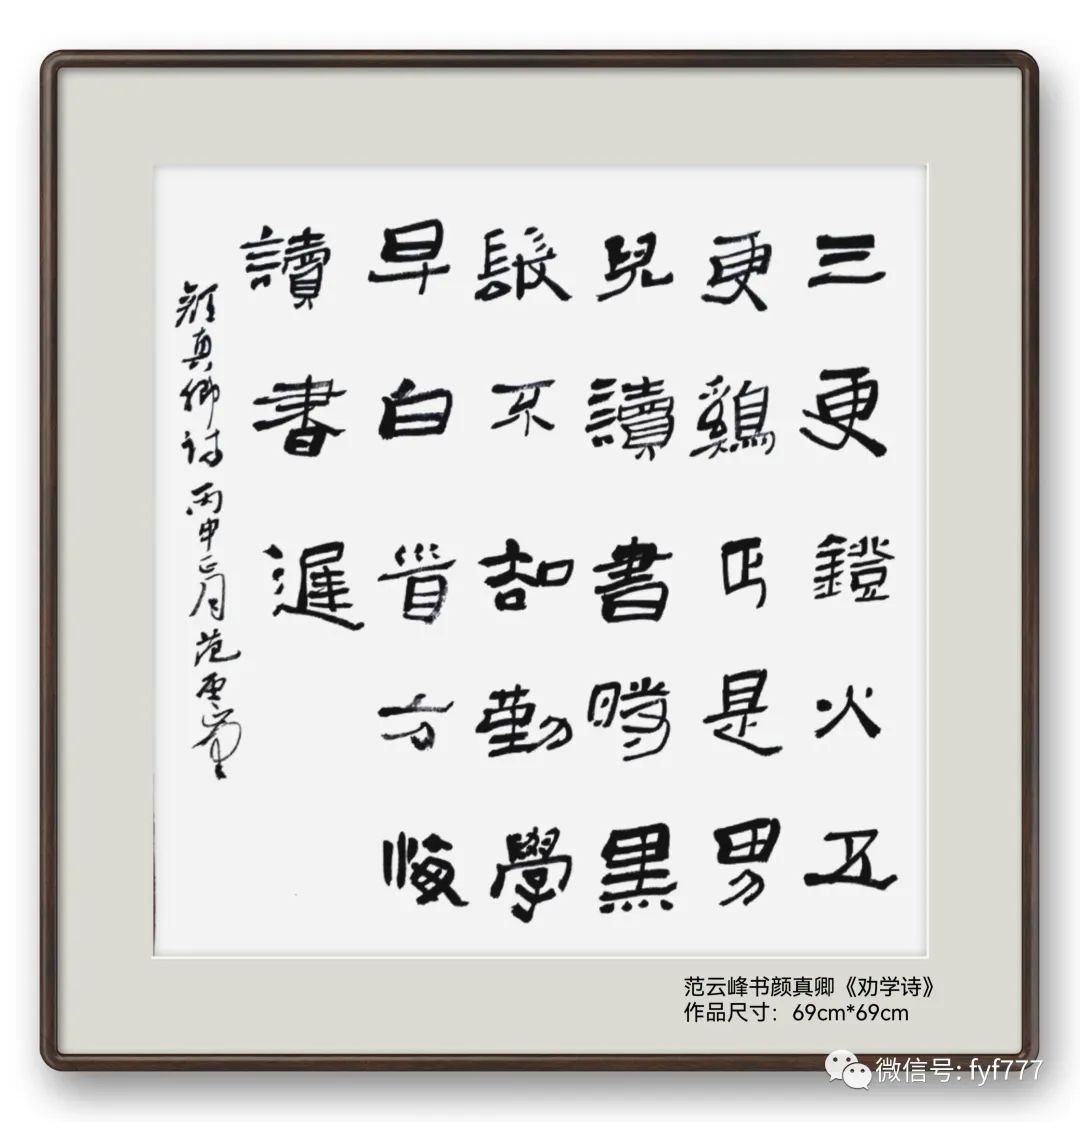 三更鐙火五
更鷄正是男
兒讀書時黑
髮不知勤學
早白首方悔
讀書遲
顏真卿詩丙申正月范雲峯
范云峰书颜真卿《劝学诗》
作品尺寸：69cm*69cm
微信号: fyf777